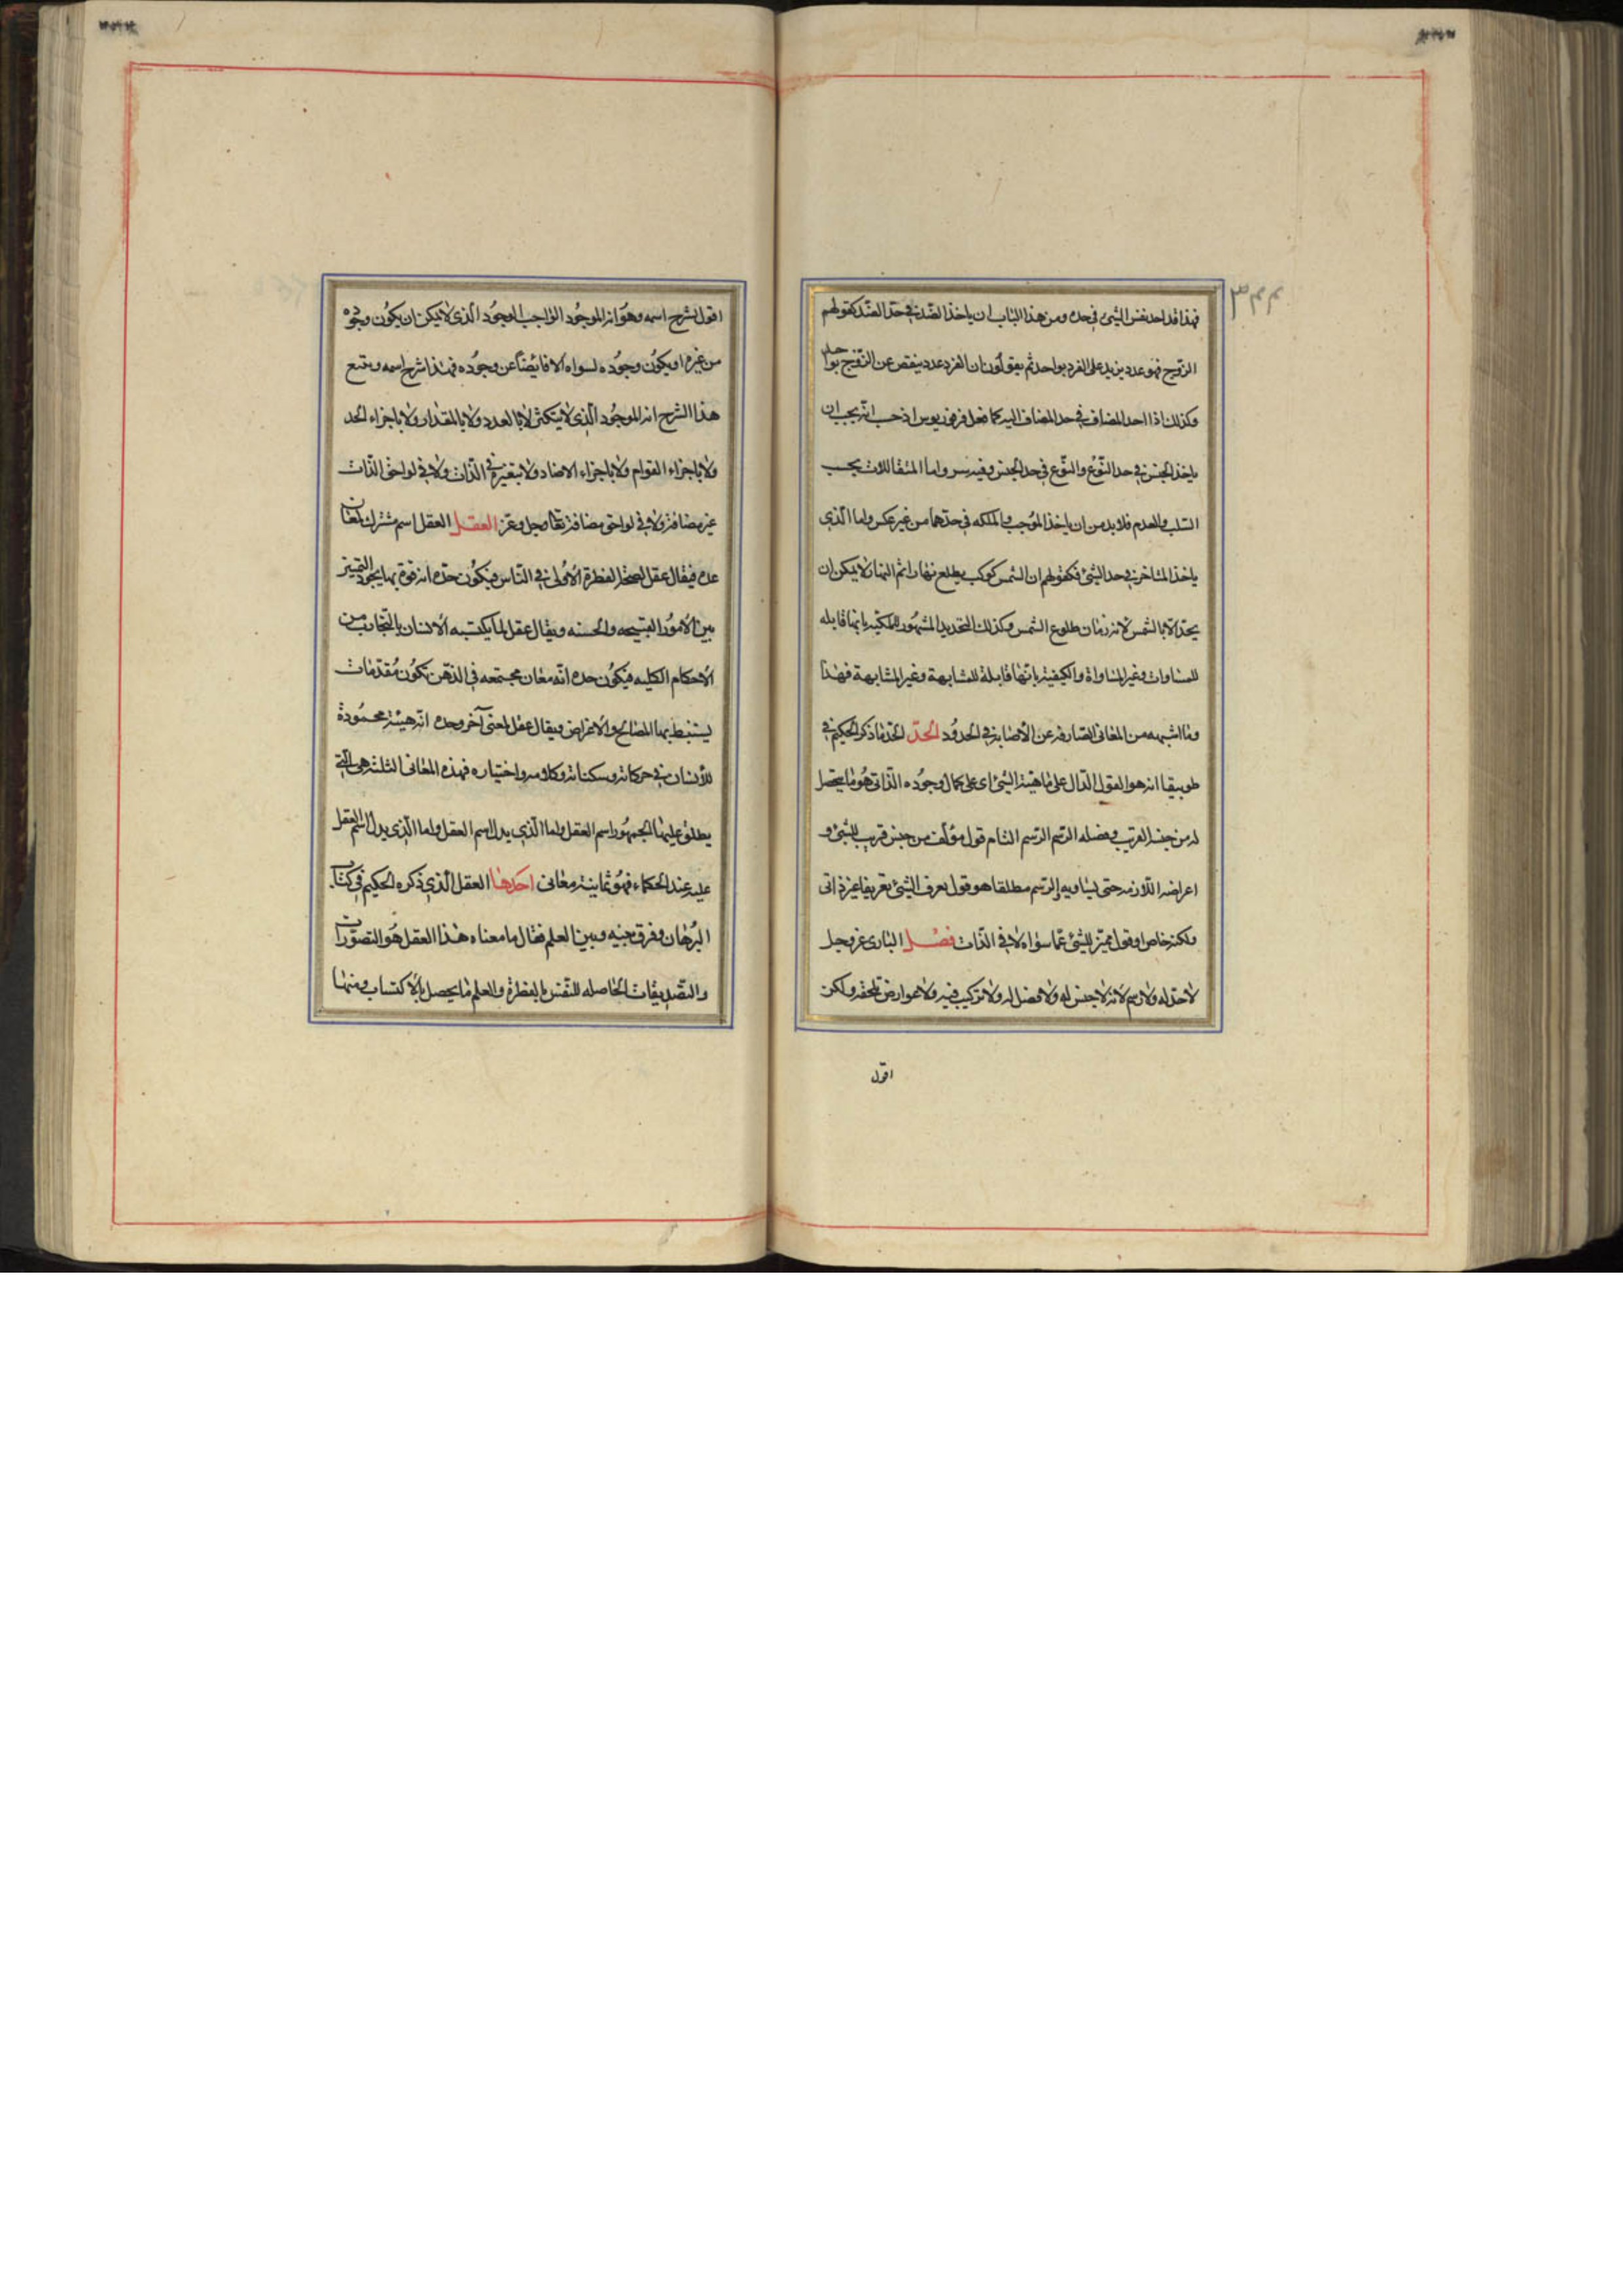 فهذا قد اخذ نفس الشئ فى حده ومن هذا الباب ان ياخذ الضد فى حد الضد كقولهم
الزوج فهو عدد يزيد على الفرد بواحد ثم يقولون ان الفرد عدد ينقص عن الزوج بواحد
وكذلك اذا اخذ المضاف فى حد المضاف اليه كما فعل فرفوريوس اذ حسب انه يجب ان
ياخذ الجنس فى حد النوع والنوع فى حد الجنس وفيه سر واما المتقابلات بحسب
السلب والعدم فلا بد من ان ياخذ الموجب والملكه فى حدهما من غير عكس واما الذى
ياخذ المتاخر فى حد الشئ فكقولهم ان الشمس كوكب يطلع نهارا ثم النهار لا يمكن ان
يحد الا بالشمس لانه زمان طلوع الشمس وكذلك التحديد المشهور للكميه بانها قابله
للمساوات وغير المساواة والكيفية بانها قابلة للمشابهة وغير المشابهة فهذا
وما اشبهه من المعانى الصارفه عن الاصابة فى الحدود الحد الحد ما ذكر الحكيم فى
طوبيقا انه هو القول الدال على ماهية الشئ اى على كمال وجوده الذاتى هو ما يتحصل
له من جنسه القريب وفصله الرسم الرسم التام قول مؤلف من جنس قريب للشئ و
اعراضه اللازمه حتى يساويه والرسم مطلقا هو قول يعرف الشئ تعريفا غير ذاتى
ولكنه خاص او قول مميز للشئ عما سواه لا فى الذات فصل البارى عز وجل
لا حد له ولا رسم لانه لا جنس له ولا فصل له ولا تركيب فيه ولا عوارض تلحقه ولكن
اقول
اقول شرح اسمه وهو انه الموجود الواجب الوجود الذى لا يمكن ان يكون وجوده
من غيره او يكون وجود لسواه الا فائضا عن وجوده فهذا شرح اسمه ويتبع
هذا الشرح انه الموجود الذى لا يتكثر لا بالعدد ولا بالمقدار ولا باجزاء الحد
ولا باجزاء القوام ولا باجزاء الاضاد ولا بتغير فى الذات ولا فى لواحق الذات
غير مضافة ولا فى لواحق مضافة تعا وجل وعز العقل العقل اسم مشترك لمعان
عده فيقال عقل لصحة الفطرة الاولى فى الناس فيكون حده انه قوة بها يجود التمييز
بين الامور القبيحه والحسنه ويقال عقل لما يكتسبه الانسان بالتجارب من
الاحكام الكليه فيكون حده انه معان مجتمعه فى الذهن تكون مقدمات
يستنبط بها المصالح والاغراض ويقال عقل لمعنى آخر وحده انه هيئة محمودة
للانسان فى حركاته وسكناته وكلامه واختياره فهذه المعانى الثلثه هى التى
يطلق عليها الجمهور اسم العقل واما الذى يدل اسم العقل واما الذى يدل اسم العقل
عليه عند الحكماء فهو ثمانية معانى احدها العقل الذى ذكره الحكيم فى كتاب
البرهان وفرق بينه وبين العلم فقال ما معناه هذا العقل هو التصورات
والتصديقات الحاصله للنفس بالفطرة والعلم ما يحصل بالاكتساب ومنها